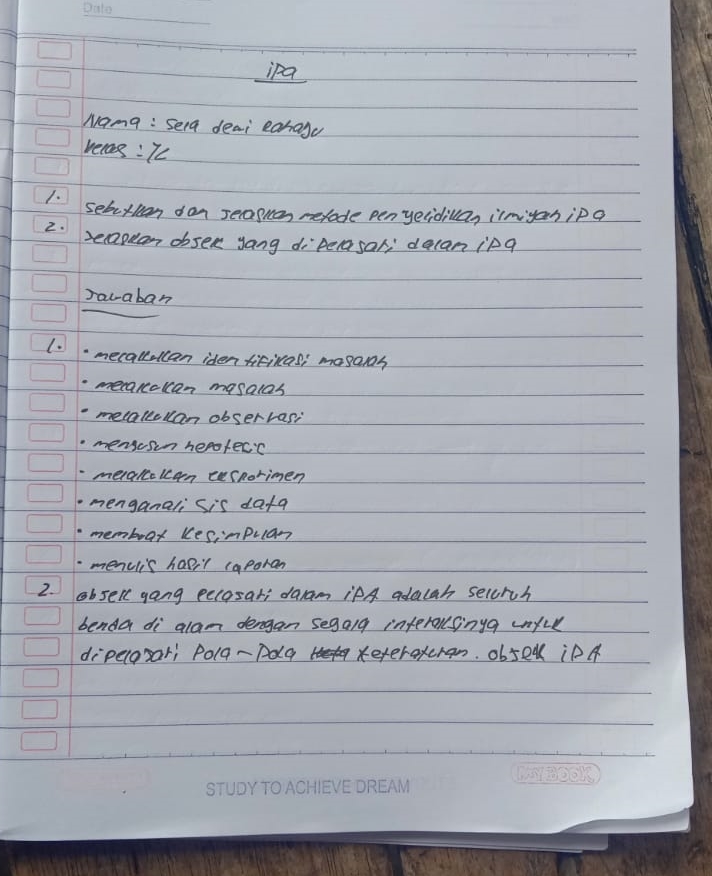 Date
IPA
Nama : Sela dewi Rahayu
Kelas : 7C
1. Sebutkan dan Jelaskan metode penyelidikan ilmiyah IPA
2. Jelaskan obsek yang dipelasari dalam IPA
Jawaban
1. • melakukan identifikasi masalah
• melakukan masalah
• melakukan observasi
• mengusun hepotecic
• melakukan eksporimen
• menganalisis data
• membuat kesimpulan
• menulis hasil laporan
2. obsek yang pelasari dalam IPA adalah seluruh
benda di alam dengan segala interaksinya untuk
dipelasari Pola-Pola keteraturan. obsek IPA
STUDY TO ACHIEVE DREAM
MY BOOK